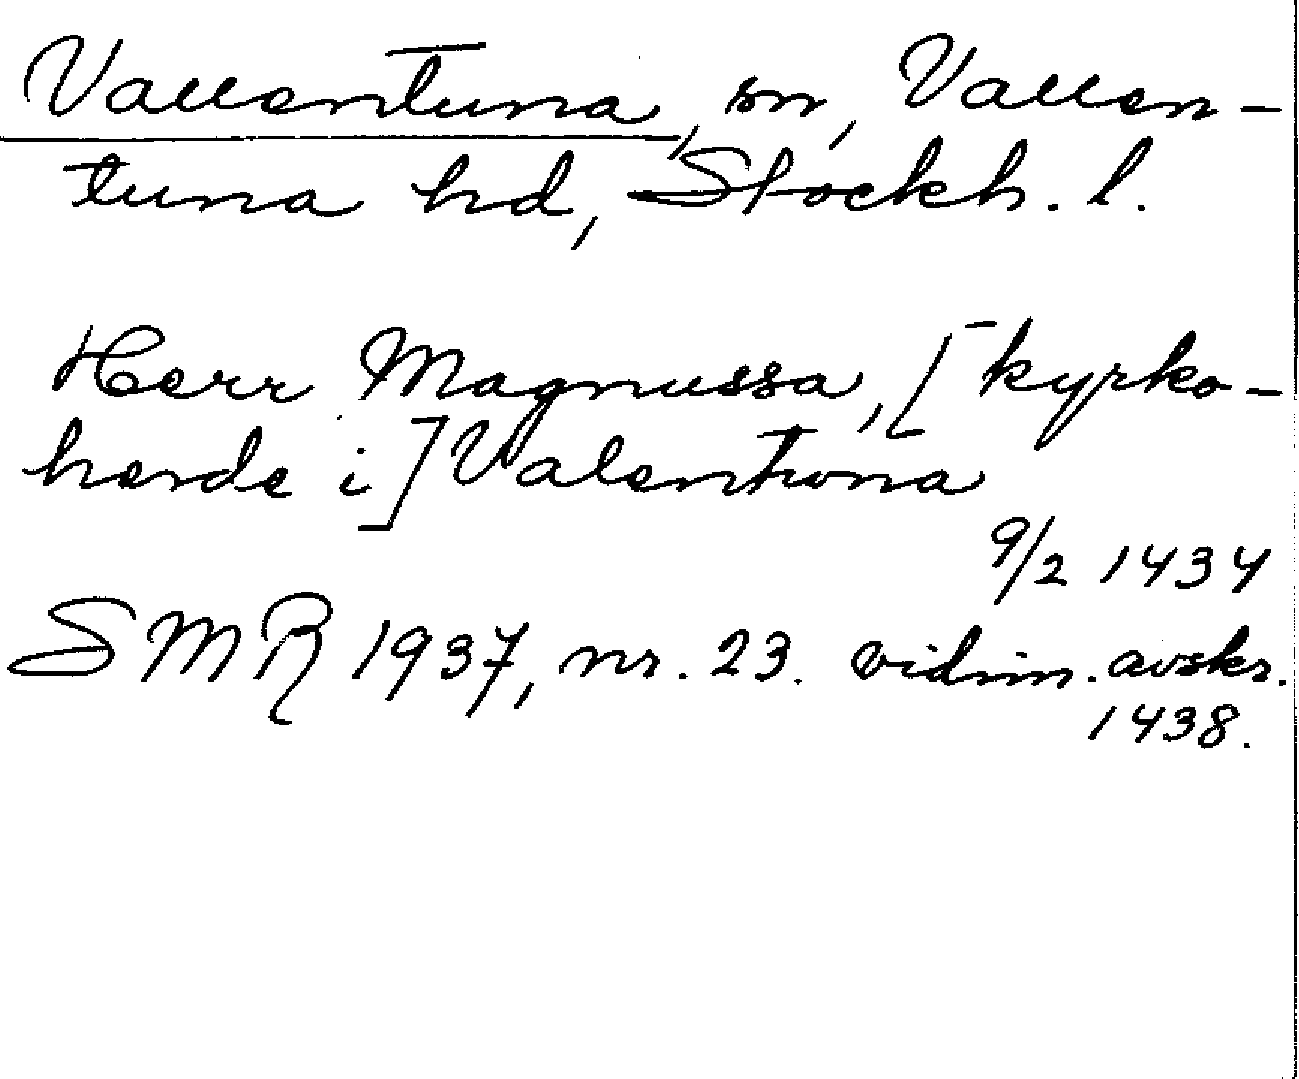 Vallentuna, sn, Vallen-
tuna hd, Stockh. l.
Herr Magnussa, [kyrko-
herde i] Valentwna
9/2 1434
SMR 1937, nr. 23. vidim. avskr.
1438.